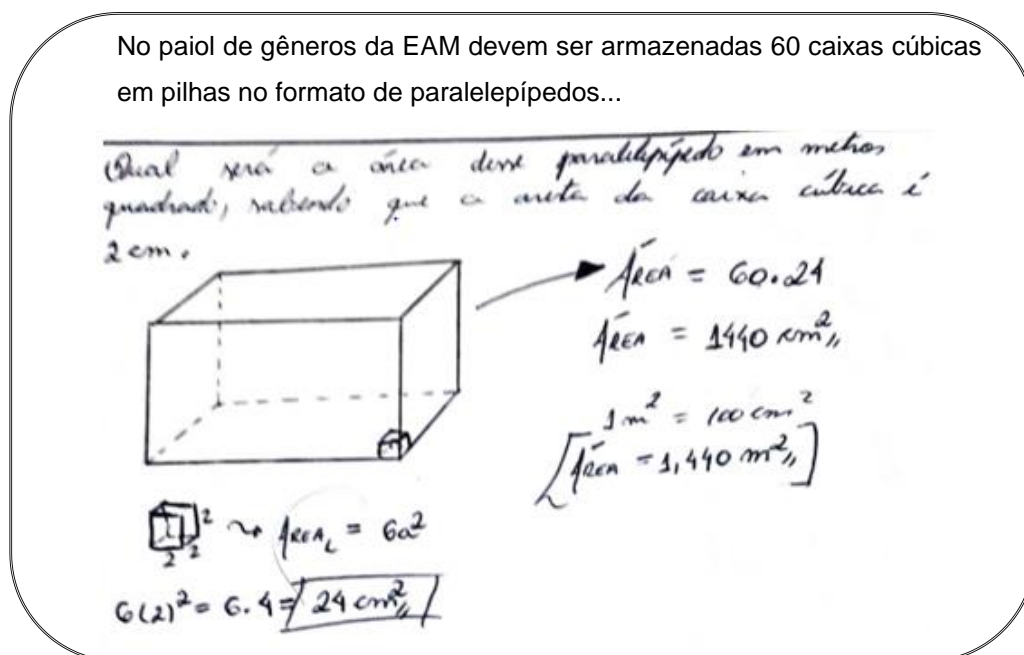 No paiol de gêneros da EAM devem ser armazenadas 60 caixas cúbicas
em pilhas no formato de paralelepípedos...
Qual será a área desse paralelepípedo em metros
quadrado, sabendo que a aresta da caixa cúbica é
2 cm.
ÁREA = 60.24
ÁREA = 1440 cm²,,
1 m² = 100 cm²
[ÁREA = 1,440 m²,,]
2
2 2
~> ÁREA_L = 6a²
6(2)² = 6.4 = 24 cm²,,